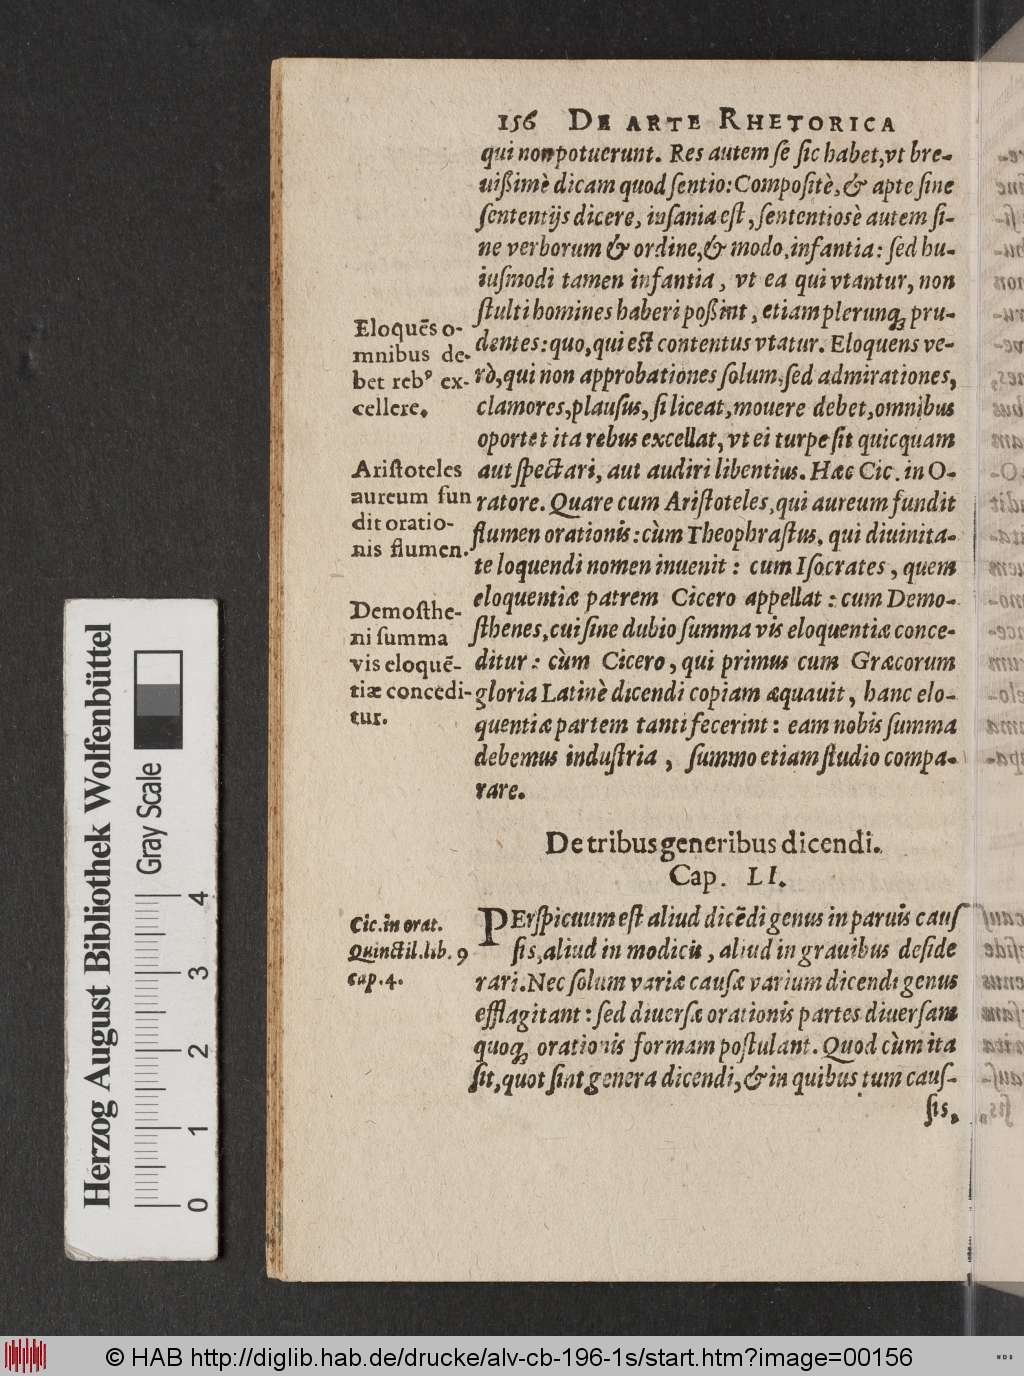 156 DE ARTE RHETORICA
qui non potuerunt. Res autem ſe ſic habet, vt bre-
uißimè dicam quod ſentio: Compoſitè, & apte ſine
ſententijs dicere, inſania eſt, ſententiosè autem ſi-
ne verborum & ordine, & modo, infantia: ſed hu-
iuſmodi tamen infantia, vt ea qui vtantur, non
ſtulti homines haberi poßint, etiam plerunq; pru-
dentes: quo, qui eſt contentus vtatur. Eloquens ve-
rò, qui non approbationes ſolum, ſed admirationes,
clamores, plauſus, ſi liceat, mouere debet, omnibus
oportet ita rebus excellat, vt ei turpe ſit quicquam
aut ſpectari, aut audiri libentius. Hæc Cic. in O-
ratore. Quare cum Ariſtoteles, qui aureum fundit
flumen orationis: cùm Theophraſtus, qui diuinita-
te loquendi nomen inuenit: cum Iſocrates, quem
eloquentiæ patrem Cicero appellat: cum Demo-
ſthenes, cui ſine dubio ſumma vis eloquentiæ conce-
ditur: cùm Cicero, qui primus cum Græcorum
gloria Latinè dicendi copiam æquauit, hanc elo-
quentiæ partem tanti fecerint: eam nobis ſumma
debemus induſtria, ſummo etiam ſtudio compa-
rare.
Eloquẽs o-
mnibus de-
bet rebꝰ ex-
cellere.
Ariſtoteles
aureum fun
dit oratio-
nis flumen.
Demoſthe-
ni ſumma
vis eloquẽ-
tiæ concedi-
tur.
De tribus generibus dicendi.
Cap. LI.
Cic. in orat.
Quinctil. lib. 9
cap. 4.
PErſpicuum eſt aliud dicẽdi genus in paruis cauſ
ſis, aliud in modicis, aliud in grauibus deſide
rari. Nec ſolum variæ cauſæ varium dicendi genus
efflagitant: ſed diuerſæ orationis partes diuerſam
quoq; orationis formam poſtulant. Quod cùm ita
ſit, quot ſint genera dicendi, & in quibus tum cauſ-
ſis,
Herzog August Bibliothek Wolfenbüttel
Gray Scale
0 1 2 3 4
© HAB http://diglib.hab.de/drucke/alv-cb-196-1s/start.htm?image=00156